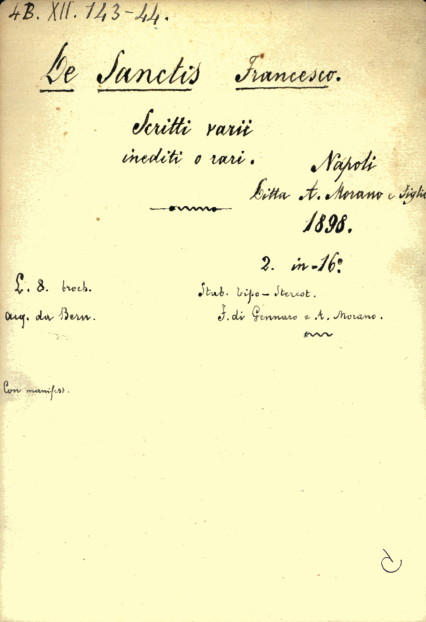 4B. XII. 143-44.
De Sanctis Francesco.
Scritti varii
inediti o rari.
Napoli
Ditta A. Morano e Figlio
1898.
2. in-16º
L. 8. broch.
acq. da Bern.
Stab. tipo-Stereot.
F. di Gennaro e A. Morano.
Con manifess.